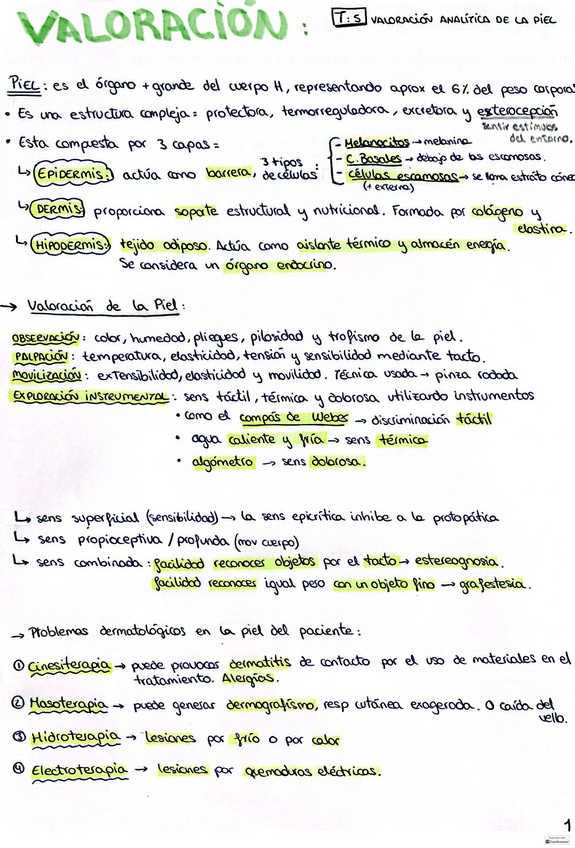 VALORACIÓN:
T:5 VALORACIÓN ANALÍTICA DE LA PIEL
PIEL: es el órgano + grande del cuerpo H, representando aprox el 6% del peso corporal
• Es una estructura compleja = protectora, termorreguladora, excretora y exterocepción
sentir estímulos
del entorno.
• Esta compuesta por 3 capas =
↳ EPIDERMIS: actúa como barrera, 3 tipos de células:
- Melanocitos → melanina
- C. Basales → debajo de las escamosas.
- células escamosas → se llama estrato córneo
(+ externa)
↳ DERMIS: proporciona soporte estructural y nutricional. Formada por colágeno y
elastina.
↳ HIPODERMIS: tejido adiposo. Actúa como aislante térmico y almacén energía.
Se considera un órgano endocrino.
→ Valoración de la Piel:
OBSERVACIÓN: color, humedad, pliegues, pilosidad y trofismo de la piel.
PALPACIÓN: temperatura, elasticidad, tensión y sensibilidad mediante tacto.
MOVILIZACIÓN: extensibilidad, elasticidad y movilidad. Técnica usada → pinza rodada
EXPLORACIÓN INSTRUMENTAL: sens táctil, térmica y dolorosa utilizando instrumentos
• como el compás de Weber → discriminación táctil
• agua caliente y fría → sens térmica
• algómetro → sens dolorosa.
↳ sens superficial (sensibilidad) → la sens epicrítica inhibe a la protopática
↳ sens propioceptiva / profunda (mov cuerpo)
↳ sens combinada: facilidad reconocer objetos por el tacto → estereognosia.
facilidad reconocer igual peso con un objeto fino → grafestesia.
→ Problemas dermatológicos en la piel del paciente:
① Cinesiterapia → puede provocar dermatitis de contacto por el uso de materiales en el
tratamiento. Alergias.
② Masoterapia → puede generar dermografismo, resp cutánea exagerada. O caída del
vello.
③ Hidroterapia → lesiones por frío o por calor
④ Electroterapia → lesiones por quemaduras eléctricas.
1
CamScanner